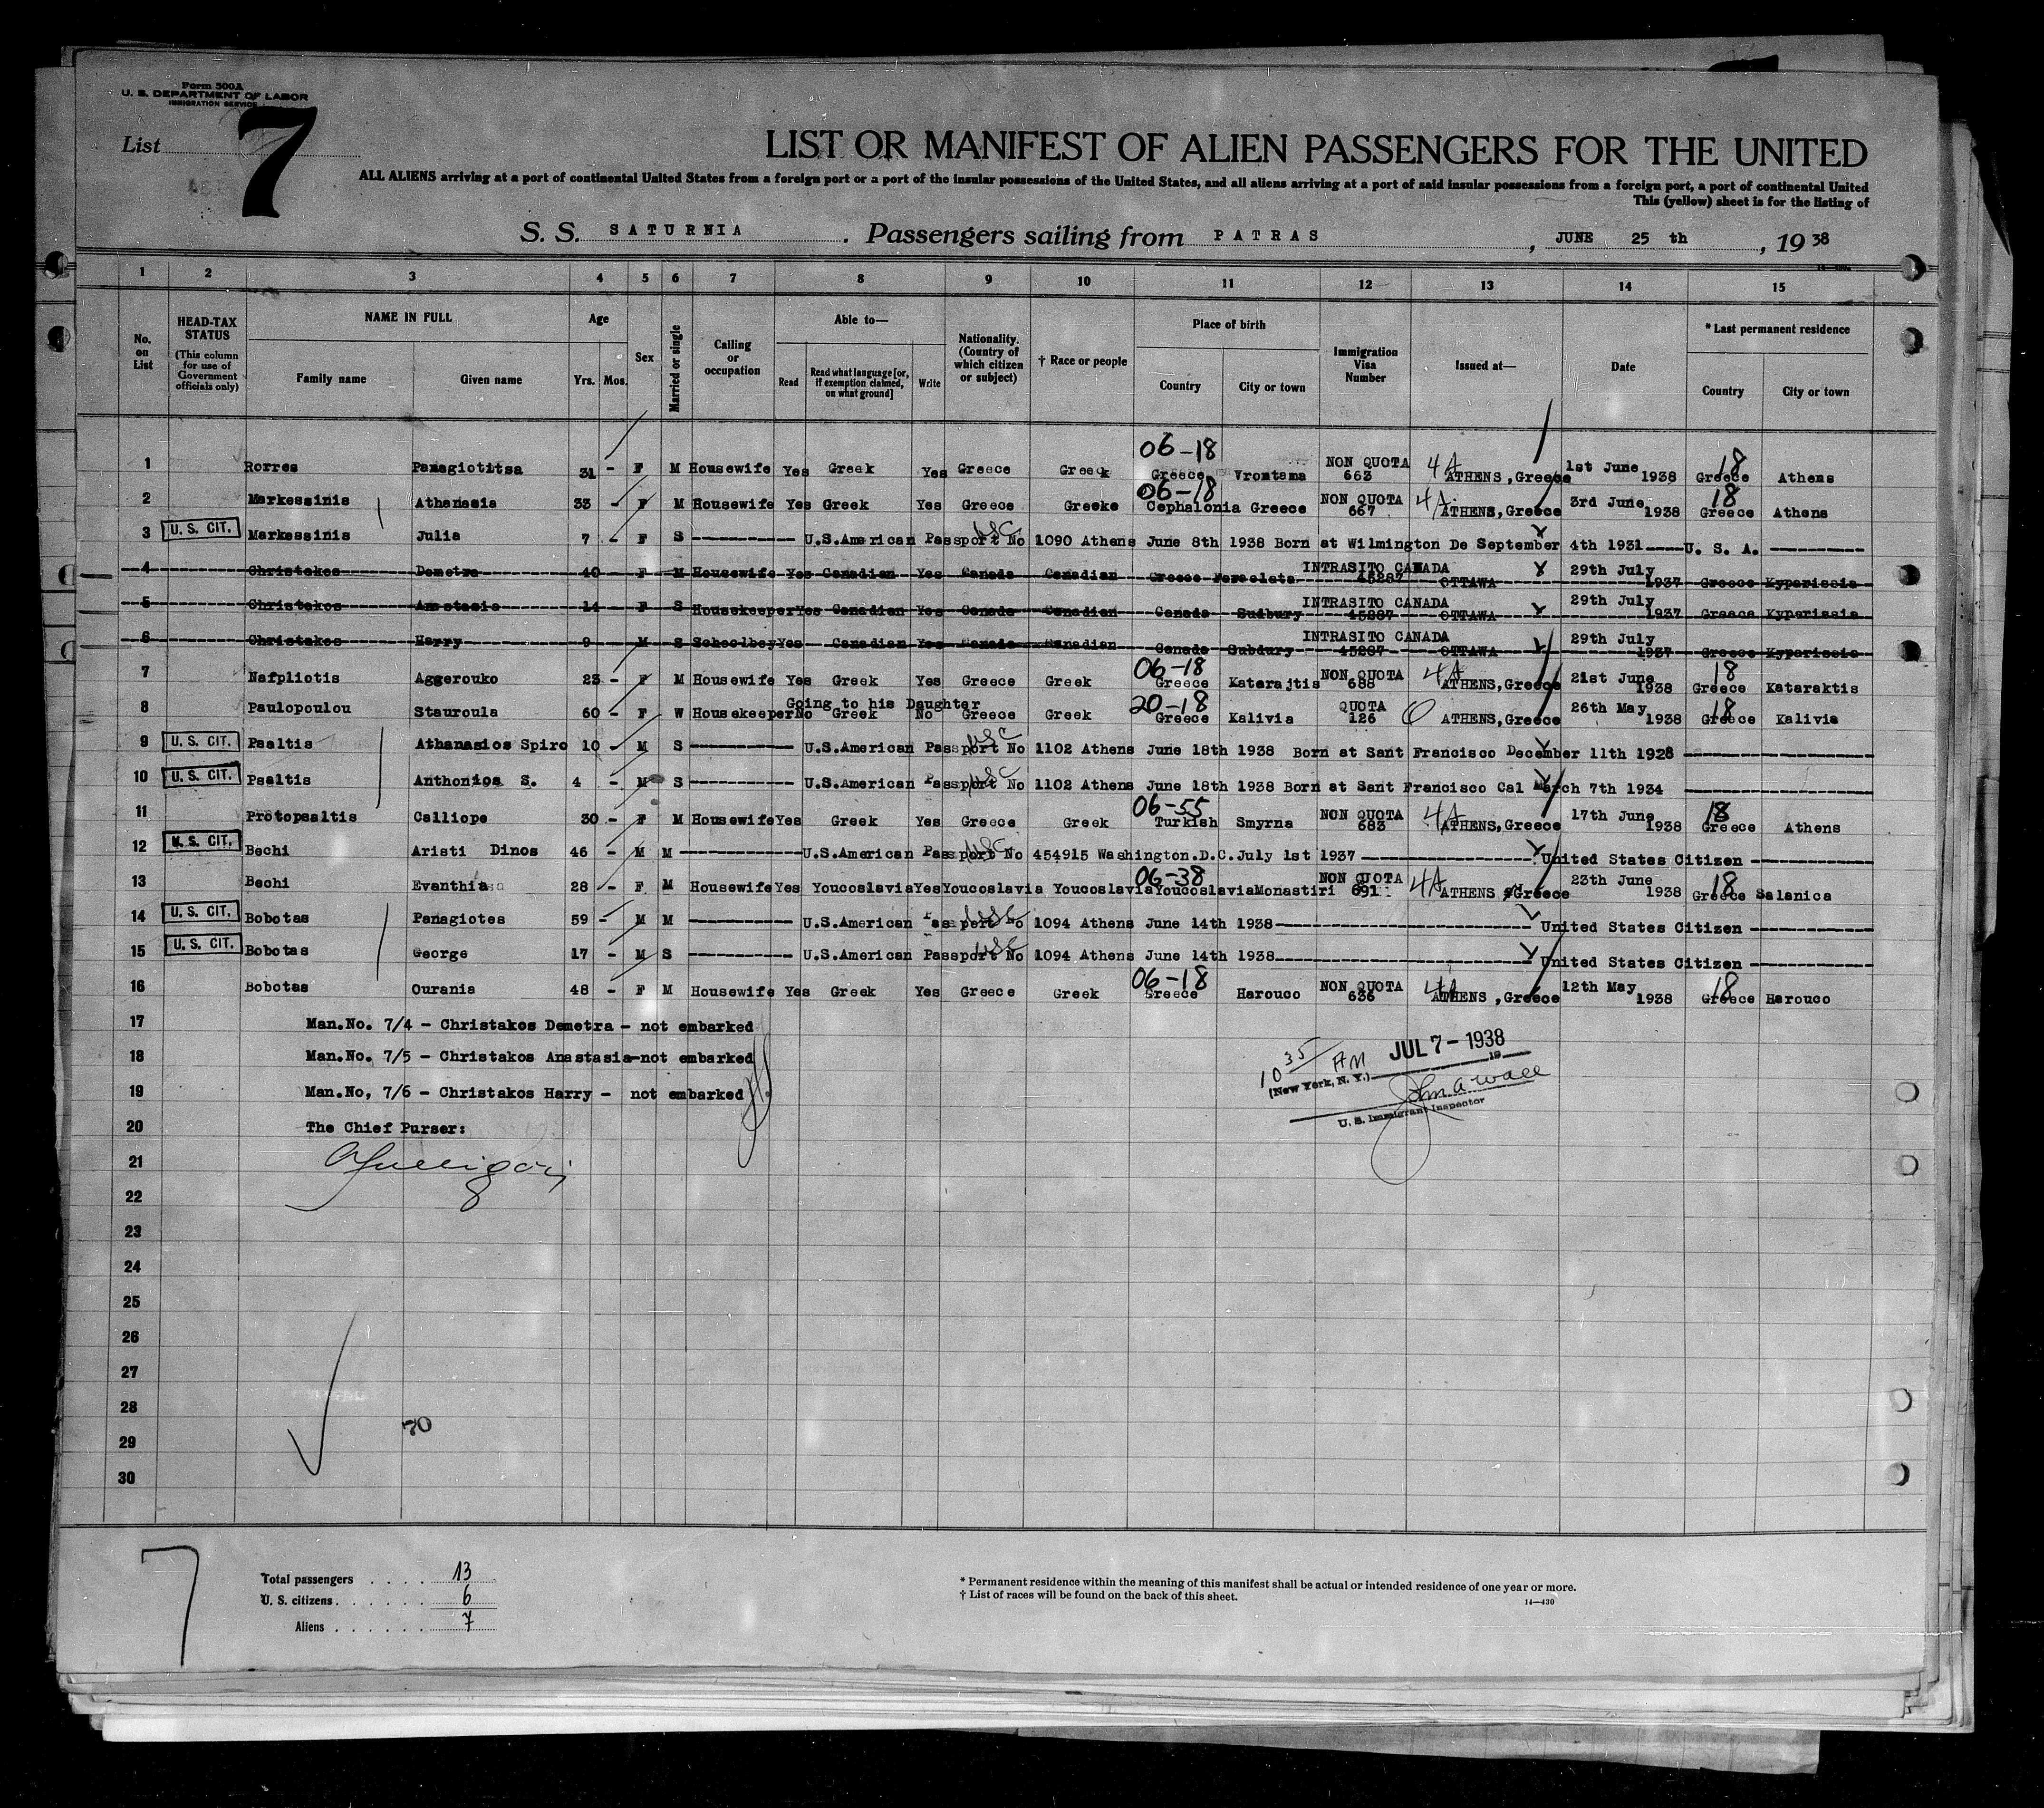 Form 500A
U. S. DEPARTMENT OF LABOR
IMMIGRATION SERVICE
List 7
LIST OR MANIFEST OF ALIEN PASSENGERS FOR THE UNITED
ALL ALIENS arriving at a port of continental United States from a foreign port or a port of the insular possessions of the United States, and all aliens arriving at a port of said insular possessions from a foreign port, a port of continental United
This (yellow) sheet is for the listing of
S. S. SATURNIA. Passengers sailing from PATRAS, JUNE 25 th, 19 38
1 2 3 4 5 6 7 8 9 10 11 12 13 14 15
No. on List
HEAD-TAX STATUS (This column for use of Government officials only)
NAME IN FULL
Family name Given name
Age
Yrs. Mos.
Sex
Married or single
Calling or occupation
Able to—
Read Read what language [or, if exemption claimed, on what ground] Write
Nationality. (Country of which citizen or subject)
† Race or people
Place of birth
Country City or town
Immigration Visa Number
Issued at—
Date
* Last permanent residence
Country City or town
1 Rorres Panagiotitsa 31 - F M Housewife Yes Greek Yes Greece Greek 06-18 Greece Vrontama NON QUOTA 663 4A ATHENS, Greece 1st June 1938 18 Greece Athens
2 Markessinis Athanasia 33 - F M Housewife Yes Greek Yes Greece Greeke 06-18 Cephalonia Greece NON QUOTA 667 4A ATHENS, Greece 3rd June 1938 18 Greece Athens
3 U. S. CIT. Markessinis Julia 7 - F S ---------- U.S.American Passport No USC 1090 Athens June 8th 1938 Born at Wilmington De September 4th 1931 ---- U. S. A. ----------
4 Christakos Demetra 40 F M Housewife Yes Canadian Yes Canada Canadian Greece INTRASITO CANADA 45287 OTTAWA 29th July 1937 Greece Kyparissia
5 Christakos Anastasia 14 F S Housekeeper Yes Canadian Yes Canada Canadian Canada Sudbury INTRASITO CANADA 45287 OTTAWA 29th July 1937 Greece Kyparissia
6 Christakos Harry 9 M S Schoolboy Yes Canadian Yes Canada Canadian Canada Subdury INTRASITO CANADA 45287 OTTAWA 29th July 1937 Greece Kyparissia
7 Nafpliotis Aggerouko 23 - F M Housewife Yes Greek Yes Greece Greek 06-18 Greece Katarajtis NON QUOTA 688 4A ATHENS, Greece 21st June 1938 18 Greece Kataraktis
Going to his Daughter
8 Paulopoulou Stauroula 60 - F W Housekeeper No Greek No Greece Greek 20-18 Greece Kalivia QUOTA 126 ATHENS, Greece 26th May 1938 18 Greece Kalivia
9 U. S. CIT. Psaltis Athanasios Spiro 10 - M S ---------- U.S.American Passport No USC 1102 Athens June 18th 1938 Born at Sant Francisco December 11th 1928 ----------
10 U. S. CIT. Psaltis Anthonios S. 4 - M S ---------- U.S.American Passport No USC 1102 Athens June 18th 1938 Born at Sant Francisco Cal March 7th 1934 ----------
11 Protopsaltis Calliope 30 - F M Housewife Yes Greek Yes Greece Greek 06-55 Turkish Smyrna NON QUOTA 683 4A ATHENS, Greece 17th June 1938 18 Greece Athens
12 U. S. CIT. Bechi Aristi Dinos 46 - M M ---------- U.S.American Passport No USC 454915 Washington.D.C.July 1st 1937 ---------- United States Citizen ----------
13 Bechi Evanthia 28 - F M Housewife Yes Youcoslavia Yes Youcoslavia Youcoslavia 06-38 Youcoslavia Monastiri NON QUOTA 691 4A ATHENS Greece 23th June 1938 18 Greece Salanica
14 U. S. CIT. Bobotas Panagiotes 59 - M M ---------- U.S.American Passport No USC 1094 Athens June 14th 1938 ---------- United States Citizen ----------
15 U. S. CIT. Bobotas George 17 - M S ---------- U.S.American Passport No USC 1094 Athens June 14th 1938 ---------- United States Citizen ----------
16 Bobotas Ourania 48 - F M Housewife Yes Greek Yes Greece Greek 06-18 Greece Harouco NON QUOTA 636 4A ATHENS, Greece 12th May 1938 18 Greece Harouco
17 Man.No. 7/4 - Christakos Demetra - not embarked
18 Man.No. 7/5 - Christakos Anastasia-not embarked
19 Man.No, 7/6 - Christakos Harry - not embarked
20 The Chief Purser:
10 35 AM JUL 7 - 1938
(New York, N. Y.) 19
John A Wall
U. S. Immigrant Inspector
21
22
23
24
25
26
27
28
29
30
70
7
Total passengers 13
U. S. citizens 6
Aliens 7
* Permanent residence within the meaning of this manifest shall be actual or intended residence of one year or more.
† List of races will be found on the back of this sheet.
14—430